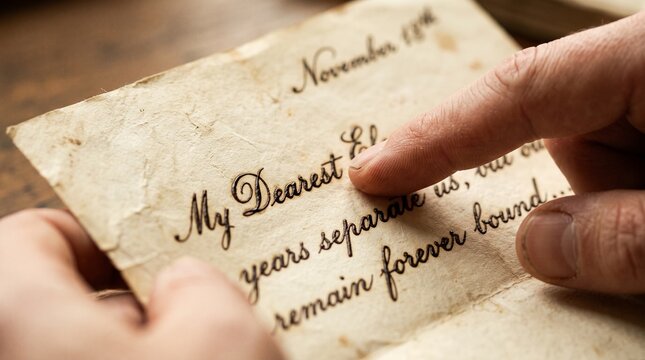 November
My Dearest
years separate us, but
remain forever bound...